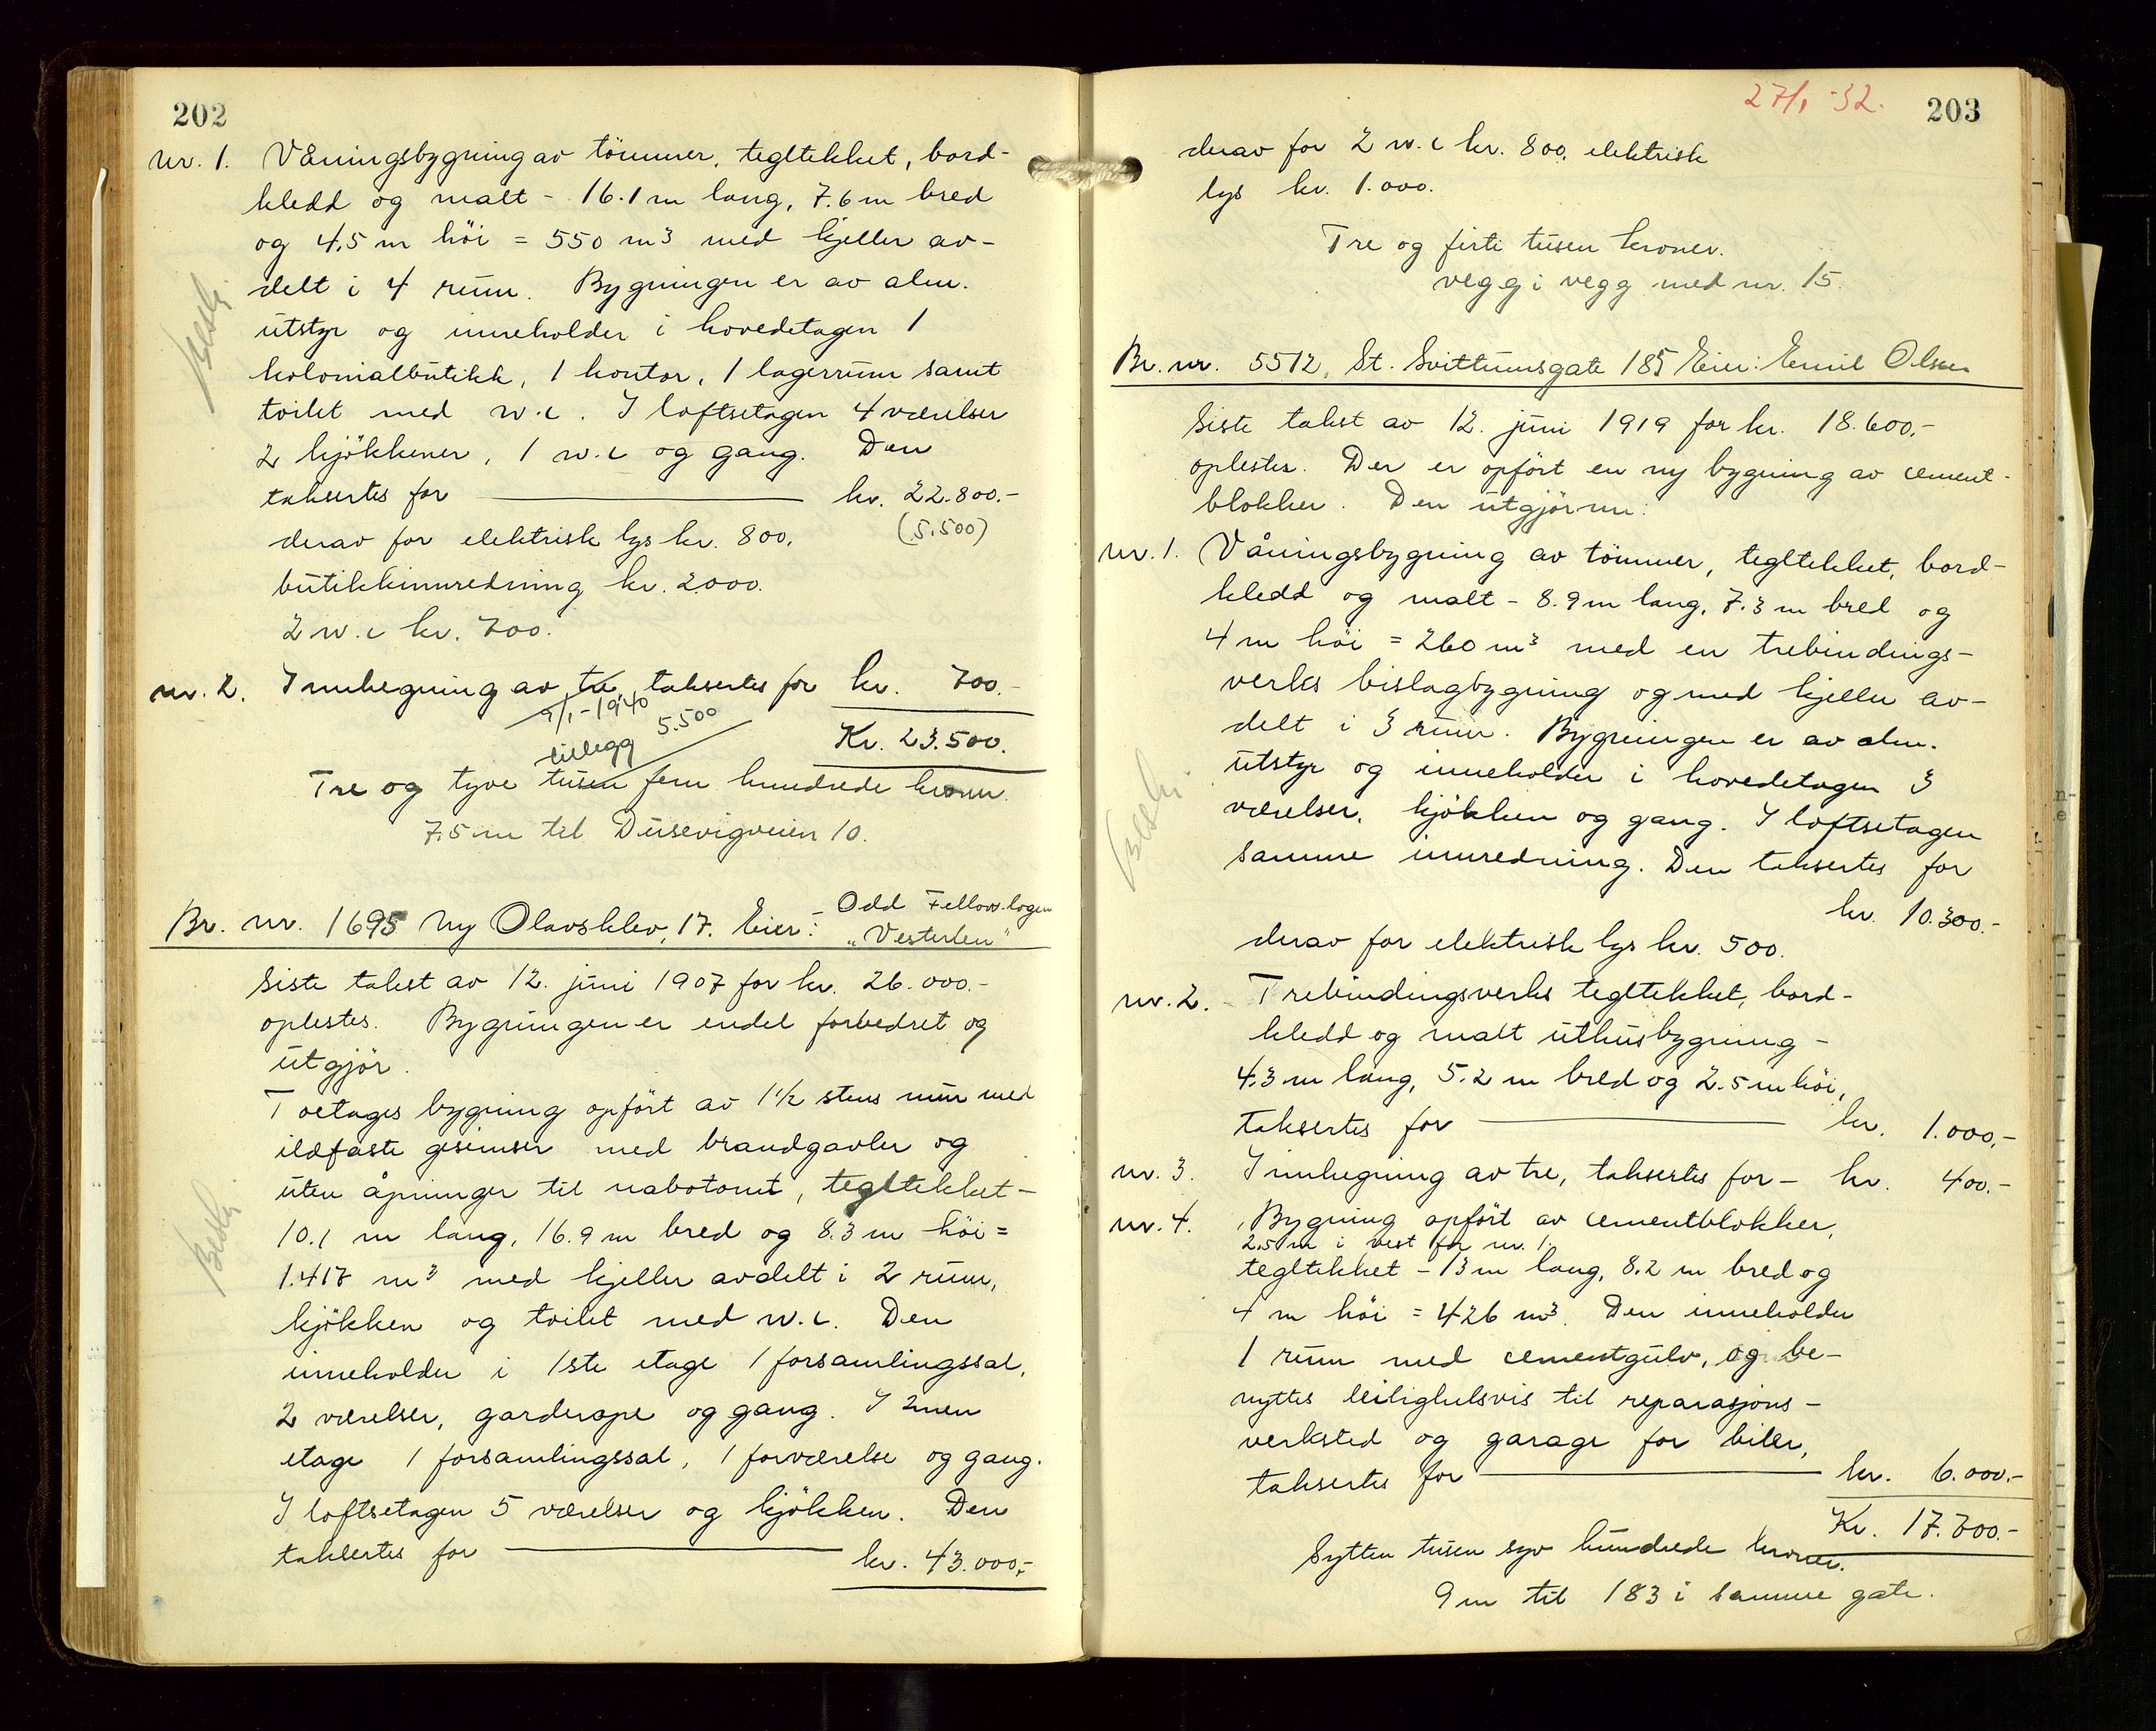 202
nr. 1. Våningsbygning av tömmer, tegltekket, bord-
kledd og malt - 16.1 m lang, 7.6 m bred
og 4,5 m höi = 550 m³ med kjeller av-
delt i 4 rum. Bygningen er av alm.
utstyr og inneholder i hovedetagen 1
kolonialbutikk, 1 kontor, 1 lagerrum samt
toilet med w.c. I loftsetagen 4 værelser
2 kjökkener, 1 w.c og gang. Den
taksertes for kr. 22.800.-
(5.500)
derav for elektrisk lys kr. 800,
butikkinnredning kr. 2000.
2 w.c kr. 700.
nr. 2. Innhegning av tre, taksertes for kr. 700.-
9/1-1940
tillegg 5.500
Kr. 23.500.
Tre og tyve tusen fem hundrede kroner.
7,5 m til Dusevigveien 10.
Br. nr. 1695 Ny Olavsklev, 17. Eier: Odd Fellow-logen
"Vesterlen"
Siste takst av 12. juni 1907 for kr. 26.000.-
oplestes. Bygningen er endel forbedret og
utgjör.
Toetages bygning opfört av 1½ stens mur med
ildfaste gesimser med brandgavler og
uten åpninger til nabotomt, tegltekket -
10.1 m lang, 16.9 m bred og 8.3 m höi =
1.417 m³ med kjeller avdelt i 2 rum,
kjökken og toilet med w.c. Den
inneholder i 1ste etage 1 forsamlingssal,
2 værelser, garderope og gang. I 2nen
etage 1 forsamlingssal, 1 forværelse og gang.
I loftsetagen 5 værelser og kjökken. Den
taksertes for kr. 43.000,-
27/1 -32. 203
derav for 2 w.c kr. 800, elektrisk
lys kr. 1.000.
Tre og firti tusen kroner.
vegg i vegg med nr. 15.
Br. nr. 5512, St. Svittunsgate 185 Eier: Emil Olsen
Siste takst av 12. juni 1919 for kr. 18.600,-
oplestes. Der er opfört en ny bygning av cement-
blokker. Den utgjör nu:
nr. 1. Våningsbygning av tömmer, tegltekket, bord-
kledd og malt - 8.9 m lang, 7.3 m bred og
4 m höi = 260 m³ med en trebindings-
verks bislagbygning og med kjeller av-
delt i 3 rum. Bygningen er av alm.
utstyr og inneholder i hovedetagen 3
værelser, kjökken og gang. I loftsetagen
samme innredning. Den taksertes for
kr. 10.300.-
derav for elektrisk lys kr. 500.
nr. 2. Trebindingsverks tegltekket, bord-
kledd og malt uthusbygning -
4.3 m lang, 5.2 m bred og 2.5 m höi,
taksertes for kr. 1.000,-
nr. 3. Innhegning av tre, taksertes for - kr. 400.-
nr. 4. Bygning opfört av cementblokker,
2,5 m i vest for nr. 1.
tegltekket - 13 m lang, 8.2 m bred og
4 m höi = 426 m³. Den inneholder
1 rum med cementgulv, og be-
nyttes leilighetsvis til reparasjons-
verksted og garage for biler,
taksertes for kr. 6.000.-
Kr. 17.700.-
Sytten tusen syv hundrede kroner.
9 m til 183 i samme gate.